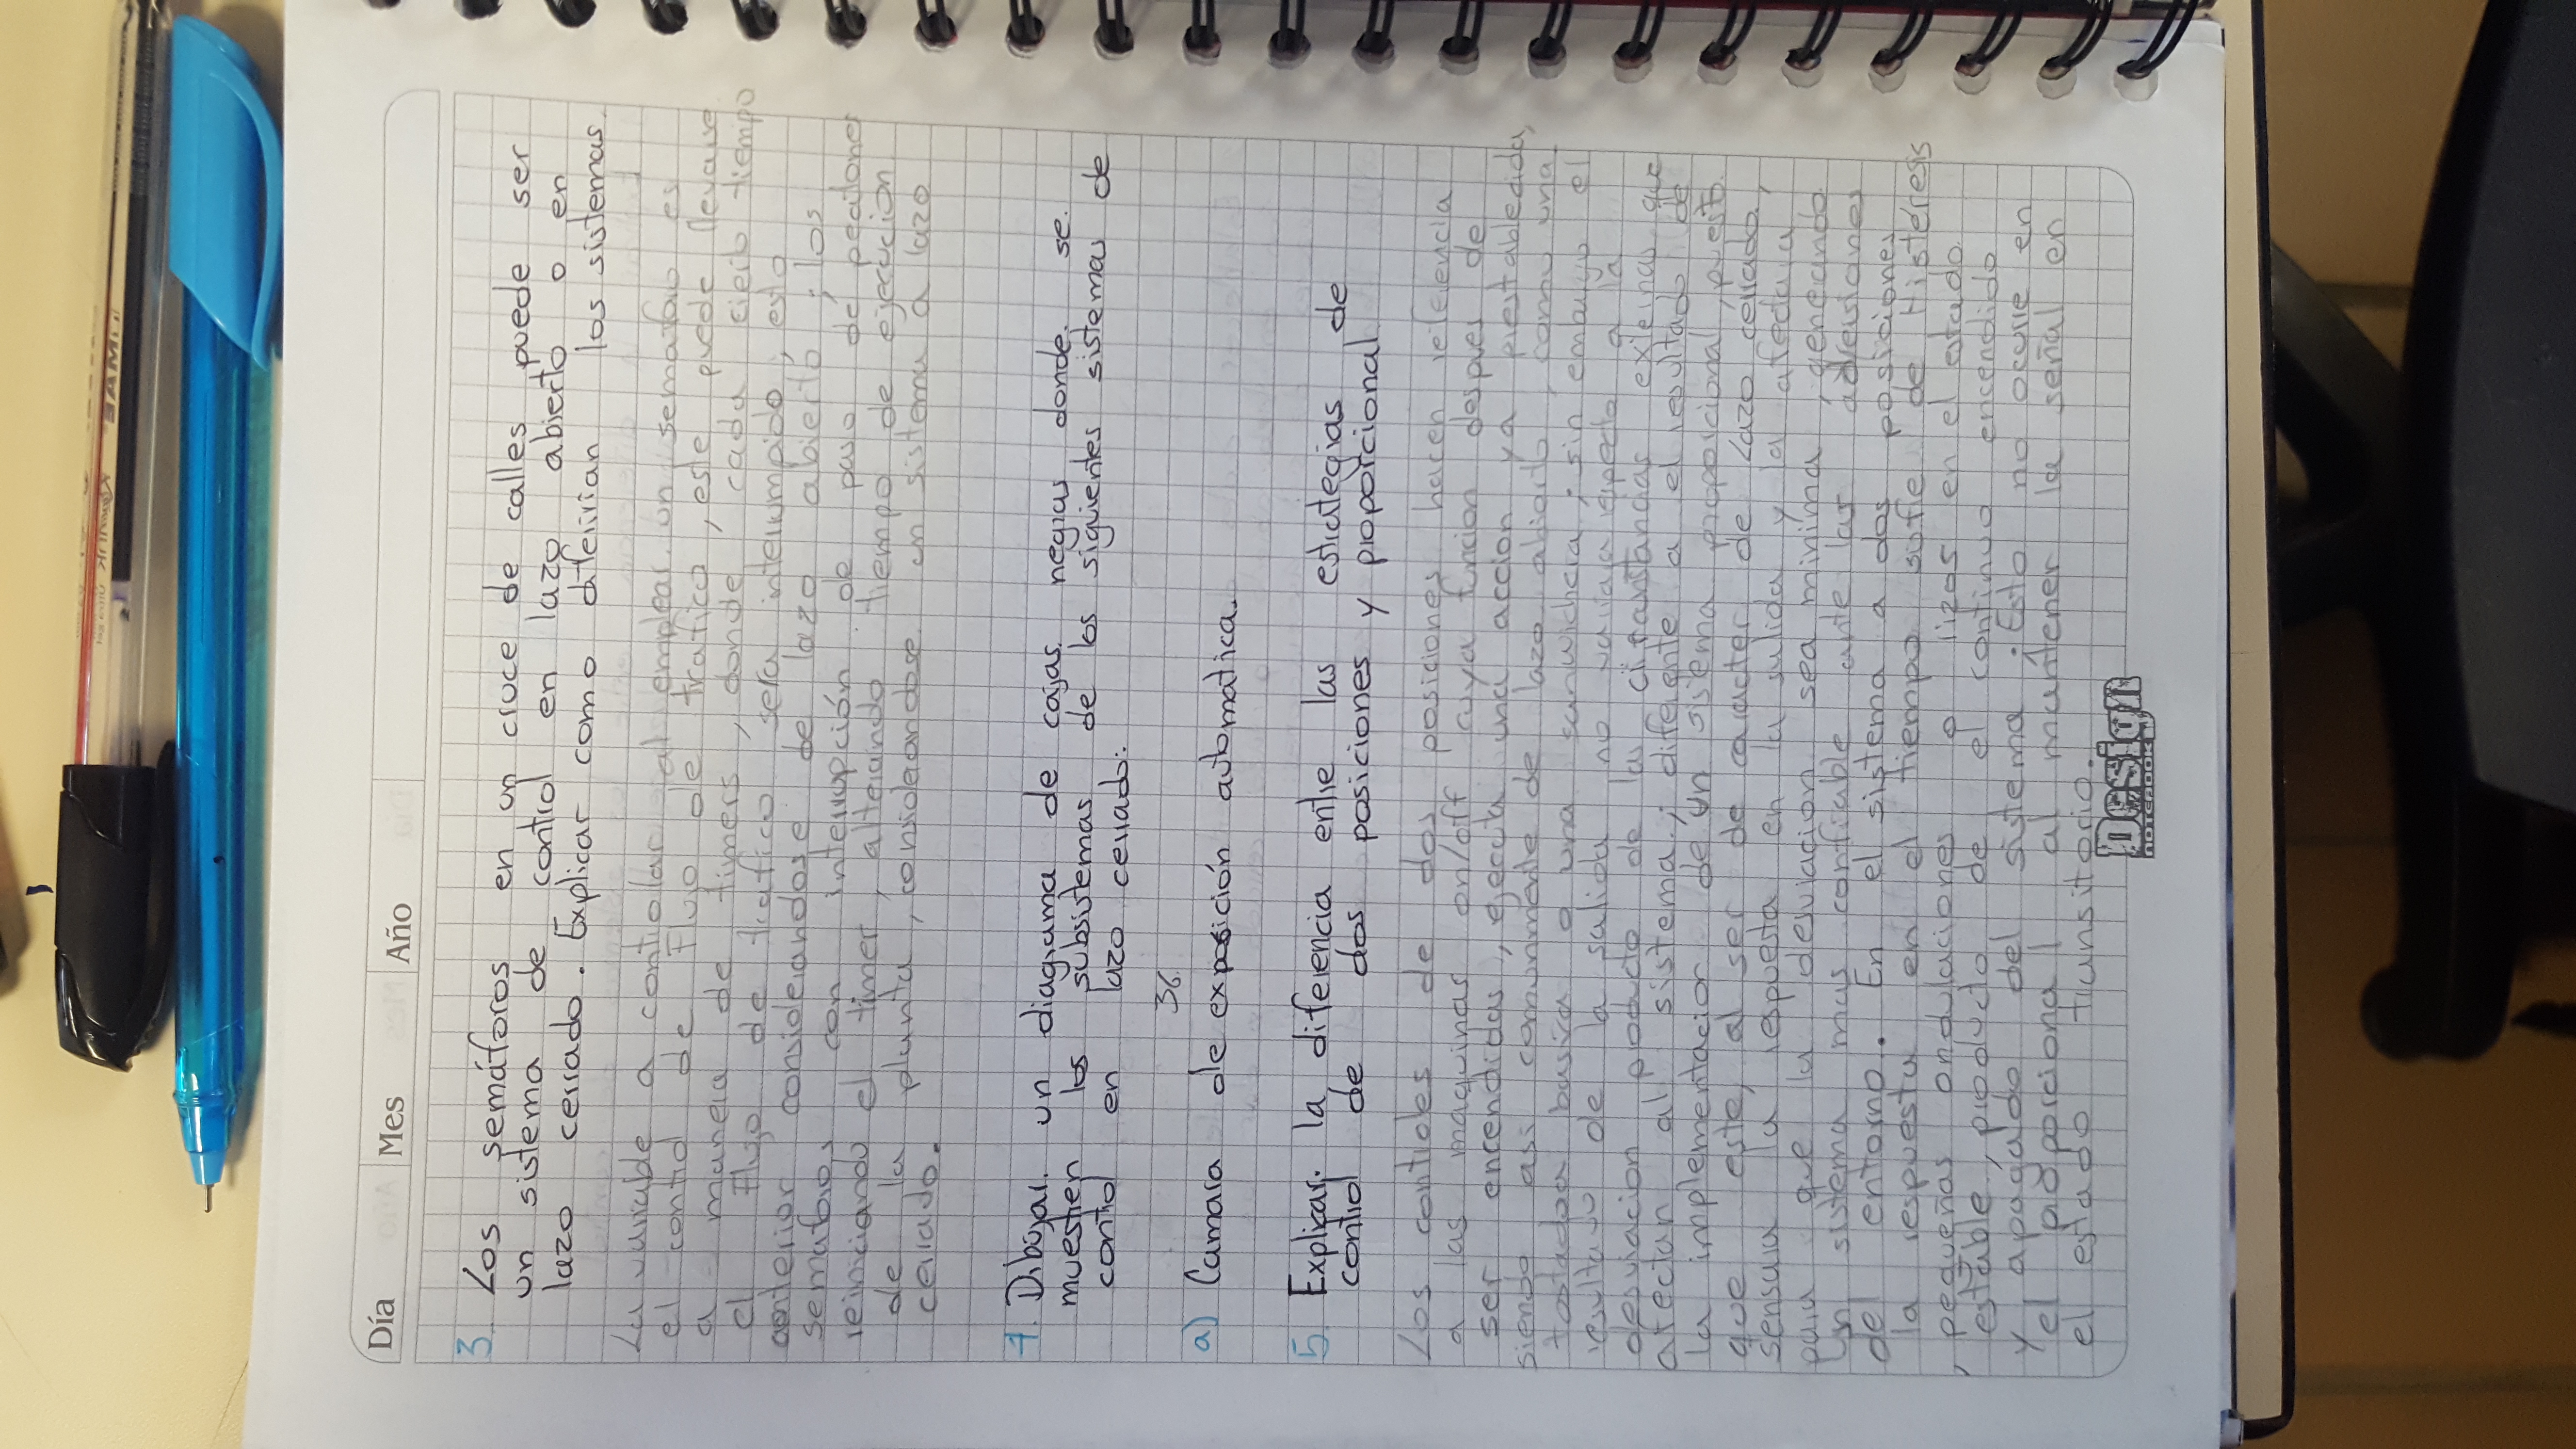 LIMAC
Kepnink
Día Mes Año
3. Los semáforos en un cruce de calles puede ser
un sistema de control en lazo abierto o en
lazo cerrado. Explicar como diferirian los sistemas.
La variable a controlar al emplear un semaforo es
el control de Flujo de trafico, este puede llevarse
a manera de timers, donde cada cierto tiempo
el flujo de trafico sera interrumpido, esto
anterior considerandose de lazo abierto; los
semaforos con interrupción de paso de peatones
reiniciando el timer, alterando tiempo de ejecucion
de la planta, considerandose un sistema a lazo
cerrado.
4. Dibujar un diagrama de cajas negras donde se
muestren los subsistemas de los siguientes sistemas de
control en lazo cerrado:
36.
a) Camara de exposición automatica.
5. Explicar la diferencia entre las estrategias de
control de dos posiciones y proporcional
Los controles de dos posiciones hacen referencia
a las maquinas on/off cuya funcion despues de
ser encendidas, ejecuta una accion ya prestablecida,
siendo asi comunmente de lazo abierto, como una
tostadora basica o una sanwichera; sin embargo el
resultado de la salida no respecto a la
desviacion producto de las circunstancias externas que
afectan al sistema; diferente a el resultado de
la implementacion de un sistema proporcional, puesto
que este, al ser de caracter de Lazo cerrado,
sensara la respuesta en la salida y la afectara
para que la desviacion sea minima, generando
un sistema mas confiable ante las adversiones
del entorno. En el sistema a dos posiciones
la respuesta en el tiempo sufre de Histéresis
, pequeñas ondulaciones o rizos en el estado
estable, producto de el continuo encendido
y apagado del sistema. Esto no ocurre en
el proporcional al mantener la señal en
el estado transitorio.
Design
NOTEBOOK